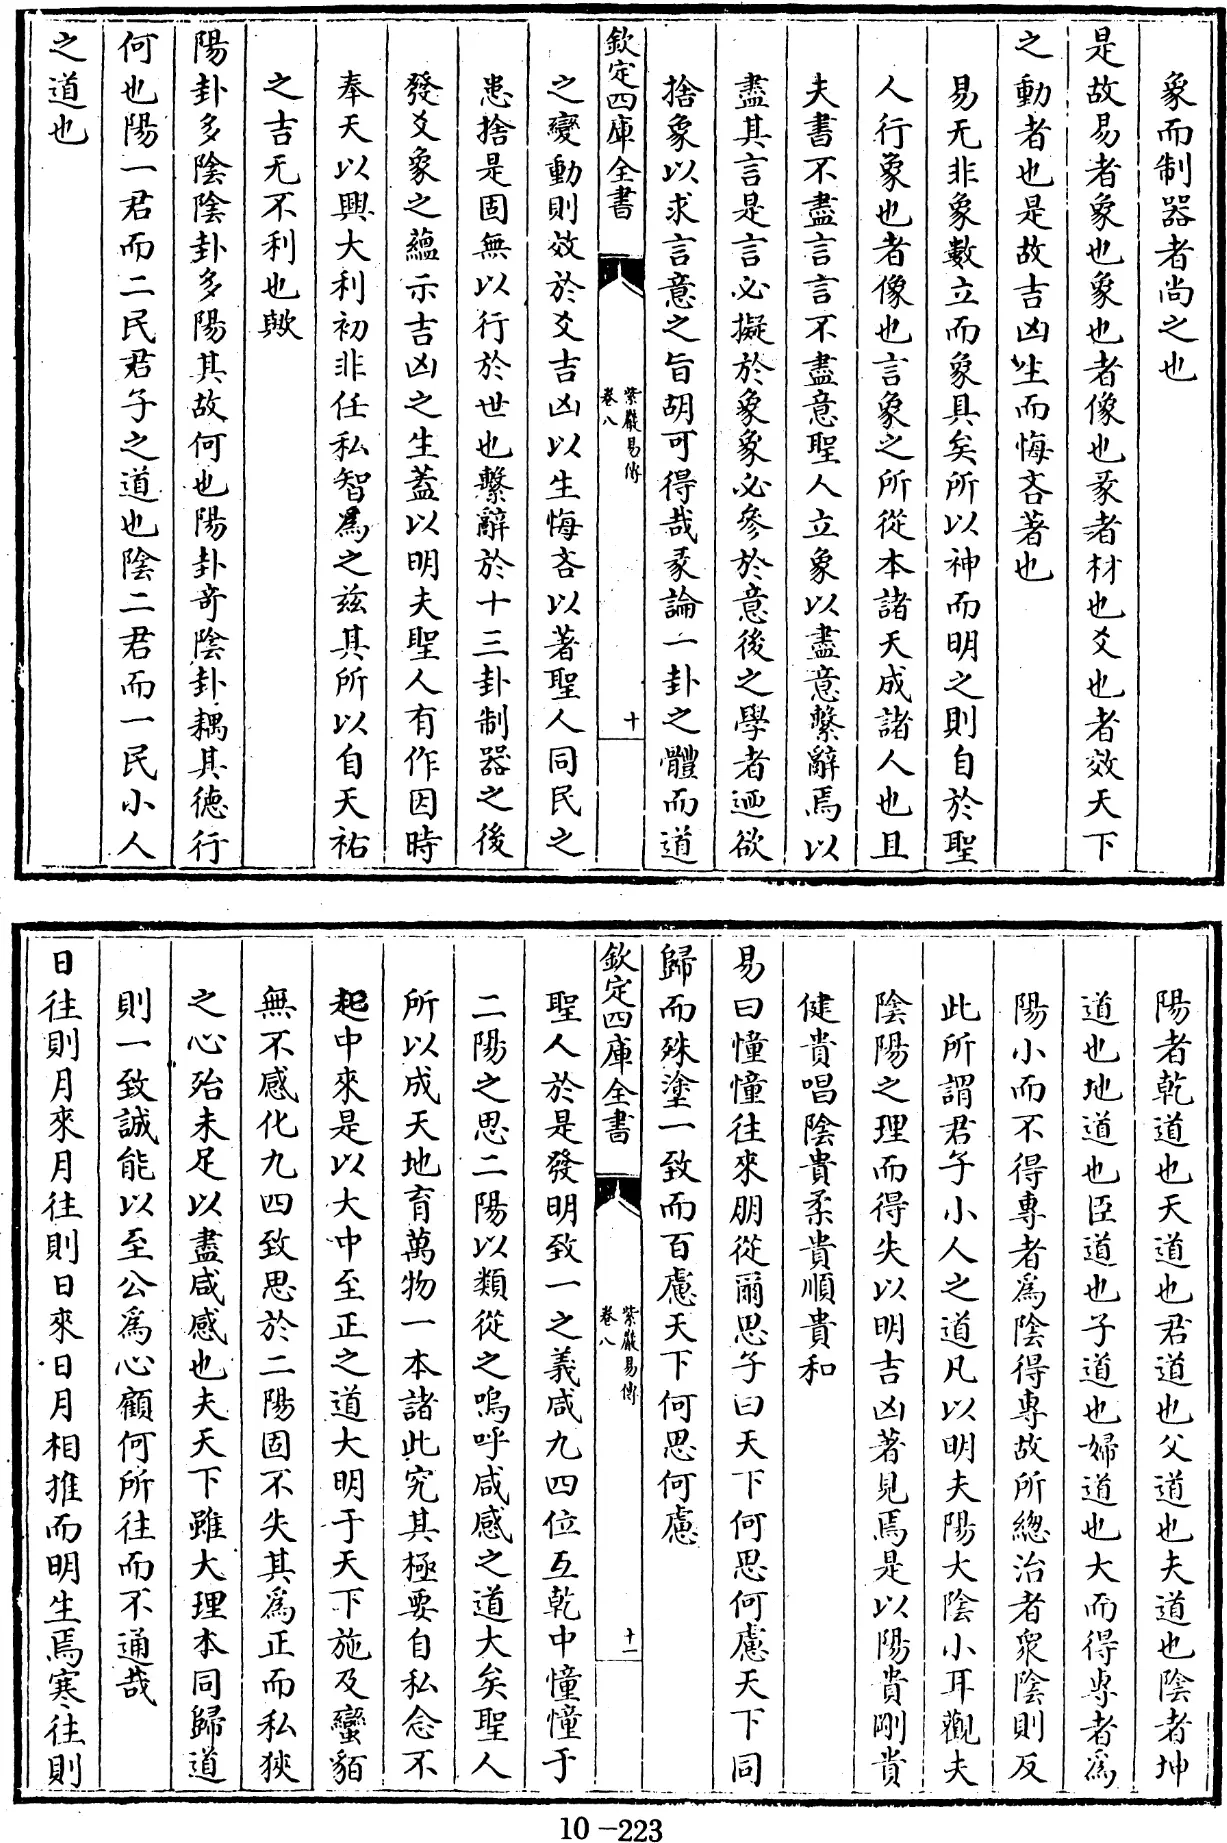 象而制器者尚之也
是故易者象也象也者像也彖者材也爻也者效天下
之動者也是故吉凶生而悔吝著也
易无非象數立而象具矣所以神而明之則自於聖
人行象也者像也言象之所從本諸天成諸人也且
夫書不盡言言不盡意聖人立象以盡意繫辭焉以
盡其言是言必擬於象象必參於意後之學者迺欲
捨象以求言意之旨胡可得哉彖論一卦之體而道
欽定四庫全書
紫巖易傳
卷八
十
之變動則效於爻吉凶以生悔吝以著聖人同民之
患捨是固無以行於世也繫辭於十三卦制器之後
發爻象之蘊示吉凶之生蓋以明夫聖人有作因時
奉天以興大利初非任私智爲之兹其所以自天祐
之吉无不利也歟
陽卦多陰陰卦多陽其故何也陽卦奇陰卦耦其德行
何也陽一君而二民君子之道也陰二君而一民小人
之道也
陽者乾道也天道也君道也父道也夫道也陰者坤
道也地道也臣道也子道也婦道也大而得專者爲
陽小而不得專者爲陰得專故所總治者衆陰則反
此所謂君子小人之道凡以明夫陽大陰小耳觀夫
陰陽之理而得失以明吉凶著見焉是以陽貴剛貴
健貴唱陰貴柔貴順貴和
易曰憧憧往來朋從爾思子曰天下何思何慮天下同
歸而殊塗一致而百慮天下何思何慮
欽定四庫全書
紫巖易傳
卷八
十一
聖人於是發明致一之義咸九四位互乾中憧憧于
二陽之思二陽以類從之嗚呼咸感之道大矣聖人
所以成天地育萬物一本諸此究其極要自私念不
起中來是以大中至正之道大明于天下施及蠻貊
無不感化九四致思於二陽固不失其爲正而私狹
之心殆未足以盡咸感也夫天下雖大理本同歸道
則一致誠能以至公爲心顧何所往而不通哉
日往則月來月往則日來日月相推而明生焉寒往則
10-223